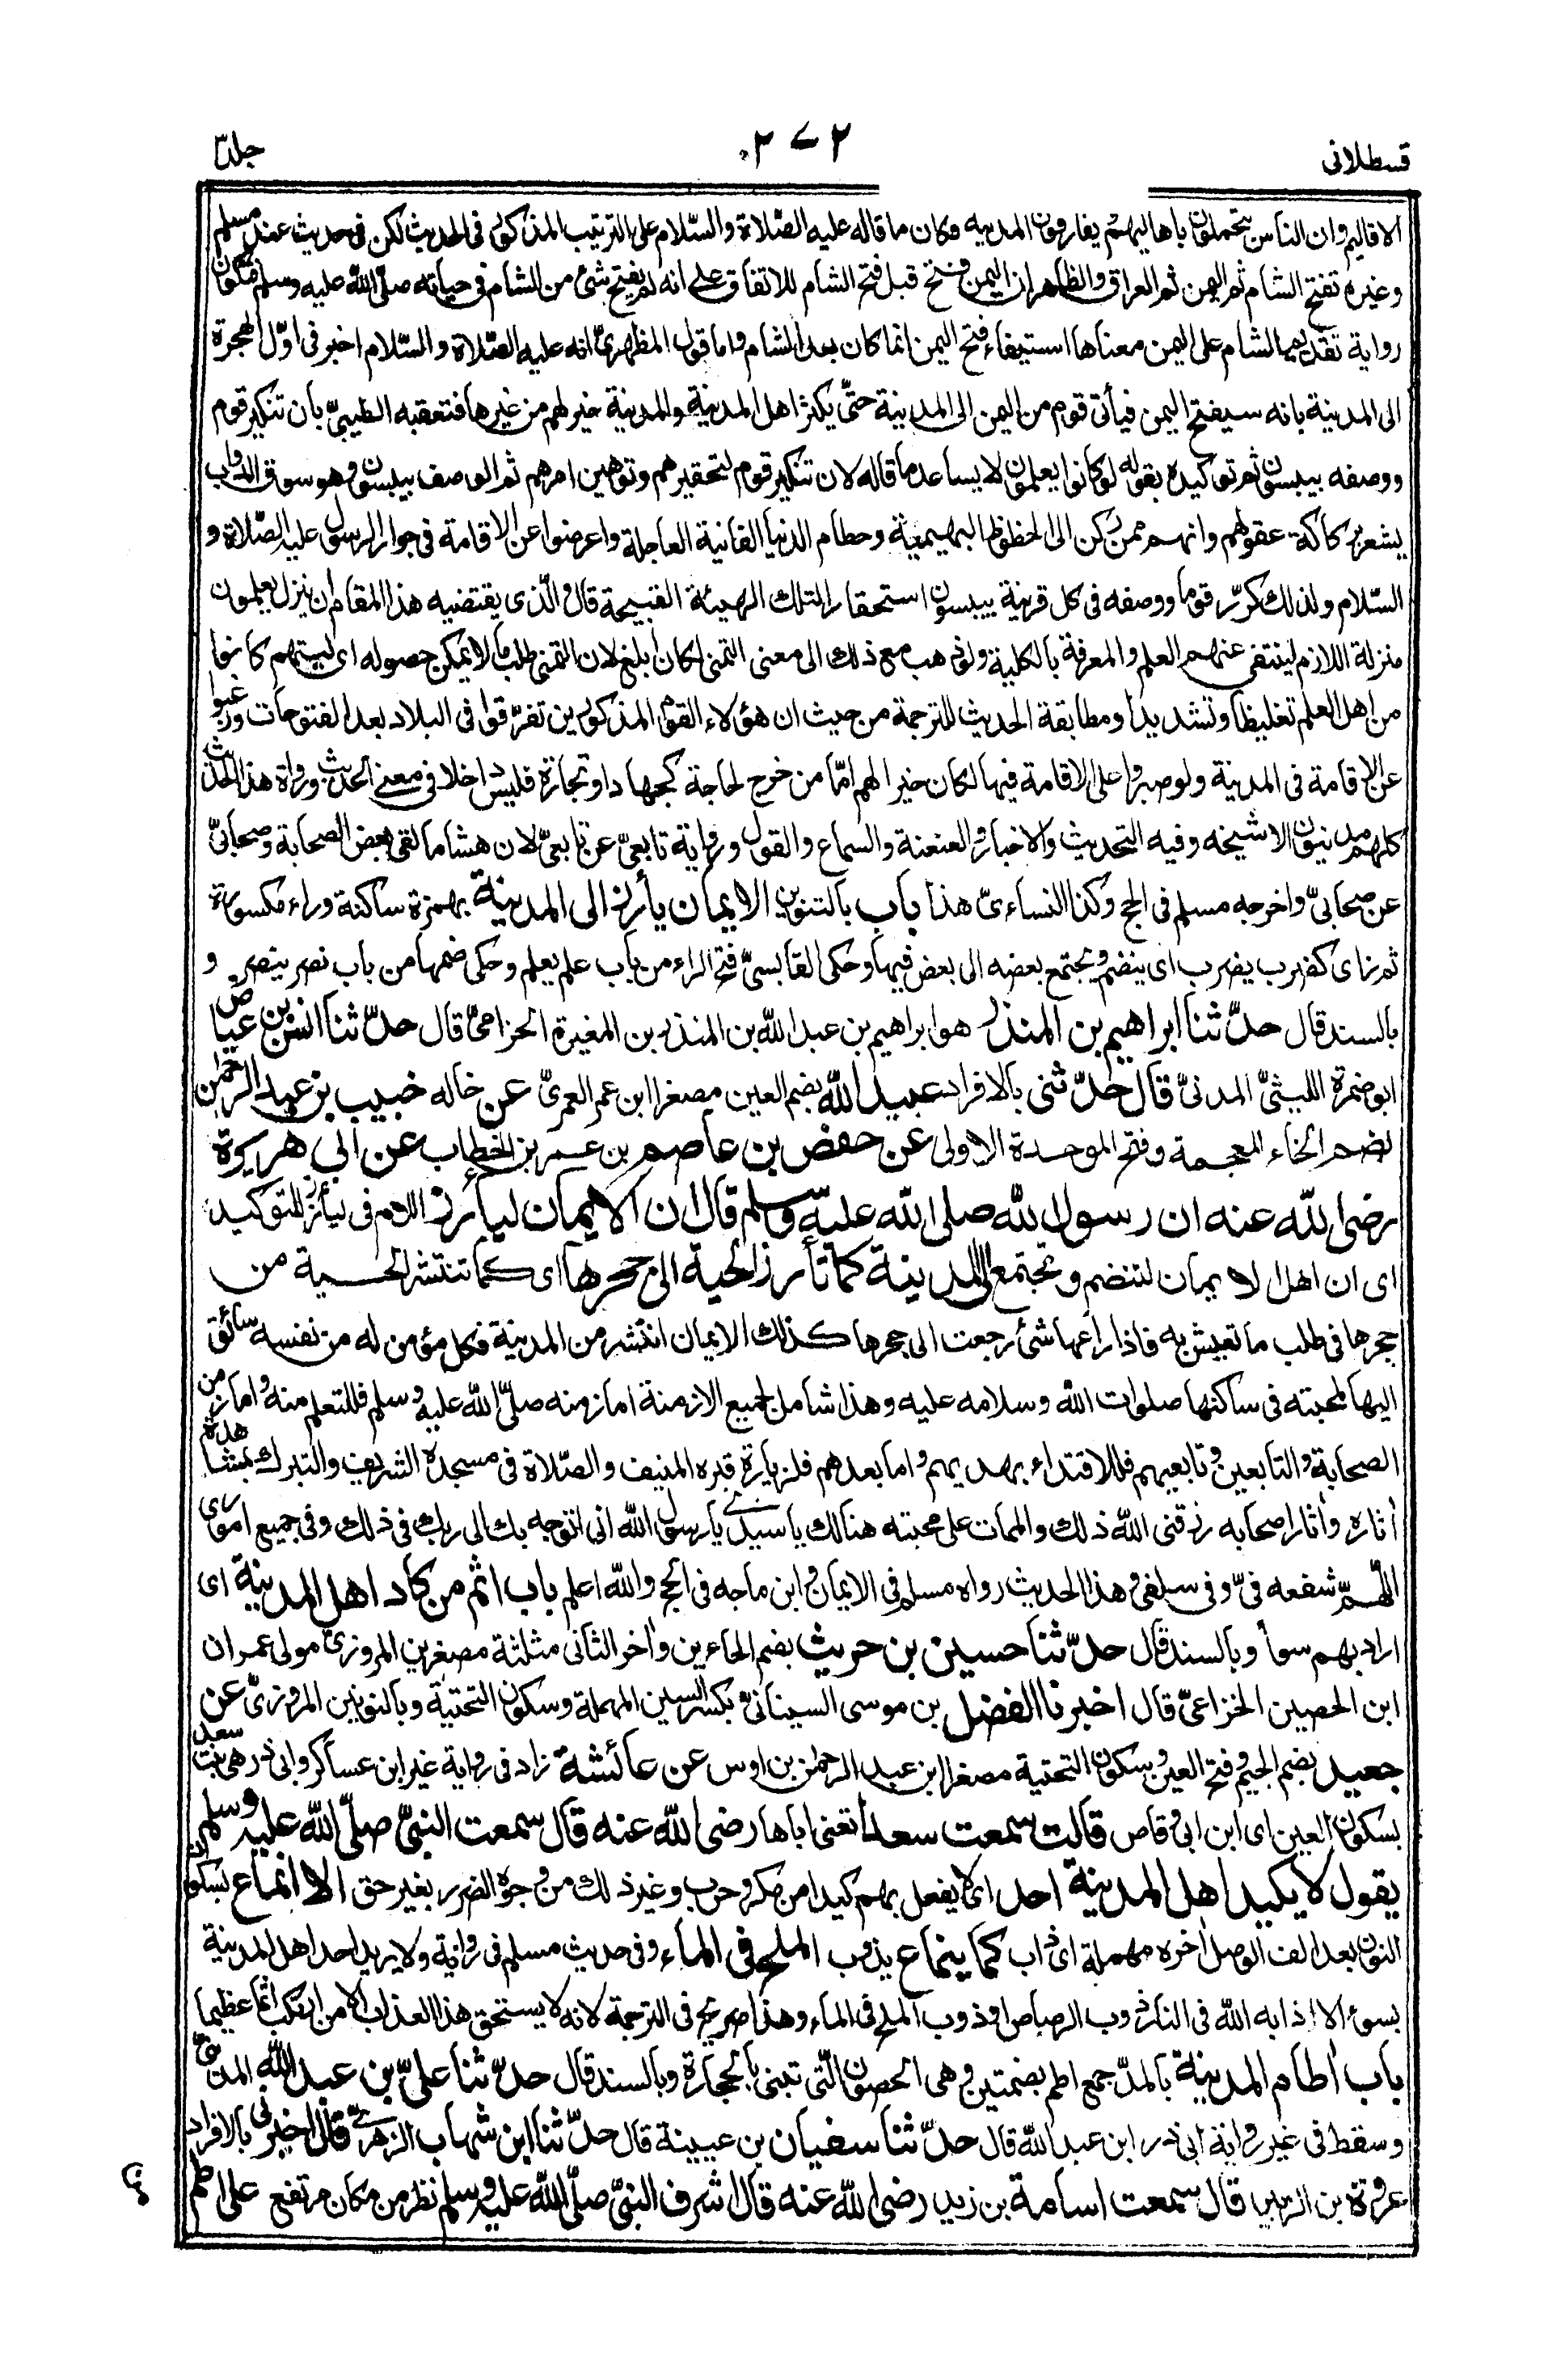 قسطلانى ٢٧٢ جلد٣
الاقاليم وان الناس يتحملون باهاليهم يفارقون المدينه فكان ما قاله عليه الصّلاة والسّلام على الترتيب المذكور فى الحديث لكن فى حديث عند مسلم
وغيره تفتح الشام ثم اليمن ثم العراق والظاهر ان اليمن فتح قبل فتح الشام للاتفاق على انه لم يفتح شئ من الشام فى حياته صلّى الله عليه وسلم فتكون
رواية تقديم الشام على اليمن معناها استيفاء فتح اليمن انما كان بعد الشام واما قول المظهرىّ انه عليه الصّلاة والسّلام اخبر فى اوّل الهجرة
الى المدينة بانه سيفتح اليمن فيأتى قوم من اليمن الى المدينة حتّى يكثر اهل المدينة والمدينة خير لهم من غيرها فتعقبه الطيبىّ بان تنكير قوم
ووصفه بيبسون ثم توكيده بقوله لو كانوا يعلمون لا يساعد ما قاله لان تنكير قوم لتحقيرهم وتوهين امرهم ثم الوصف بيبسون وهو سوق الدواب
يشعر بركاكة عقولهم وانهم ممن ركن الى الحظوظ البهيمية وحطام الدنيا الفانية العاجلة واعرضوا عن الاقامة فى جوار الرسول عليه الصّلاة و
السّلام ولذلك كرّر قوما ووصفه فى كل قرينة بيبسون استحقارا لتلك الهيئة القبيحة قال والّذى يقتضيه هذا المقام ان ينزل يعلمون
منزلة اللازم لينتفى عنهم العلم والمعرفة بالكلية ولو ذهب مع ذلك الى معنى التمنى لكان ابلغ لان التمنى طلب ما لا يمكن حصوله اى ليتهم كانوا
من اهل العلم تغليظا وتشديدا ومطابقة الحديث للترجمة من حيث ان هؤلاء القوم المذكورين تفرّقوا فى البلاد بعد الفتوحات ورغبوا
عن الاقامة فى المدينة ولو صبروا على الاقامة فيها لكان خيرا لهم امّا من خرج لحاجة كجهاد او تجارة فليس داخلا فى معنى الحديث ورواة هذا الحديث
كلهم مدنيون الا شيخه وفيه التحديث والاخبار والعنعنة والسماع والقول ورواية تابعىّ عن تابعىّ لان هشاما لقى بعض الصحابة وصحابىّ
عن صحابىّ واخرجه مسلم فى الحج وكذا النساءىّ هذا باب بالتنوين الايمان يأرز الى المدينة بهمزة ساكنة وراء مكسورة
ثم زاى كضرب يضرب اى ينضم ويجتمع بعضه الى بعض فيها وحكى القابسىّ فتح الراء من باب علم يعلم وحكى ضمها من باب نصر ينصر و
بالسند قال حدّثنا ابراهيم بن المنذر هو ابراهيم بن عبد الله بن المنذر بن المغيرة الحزامىّ قال حدّثنا انس بن عياض
ابو ضمرة الليثىّ المدنىّ قال حدّثنى بالافراد عبيد الله بضم العين مصغرا ابن عمر العمرىّ عن خاله خبيب بن عبد الرحمن
بضم الخاء المعجمة وفتح الموحدة الاولى عن حفص بن عاصم بن عمر بن الخطاب عن ابى هريرة
رضى الله عنه ان رسول الله صلى الله عليه وسلم قال ان الايمان ليأرز اللام فى ليأرز للتوكيد
اى ان اهل الايمان لتنضم وتجتمع الى المدينة كما تأرز الحية الى جحرها اى كما تنتشر الحية من
جحرها فى طلب ما تعيش به فاذا راعها شئ رجعت الى جحرها كذلك الايمان انتشر من المدينة فكل مؤمن له من نفسه سائق
اليها لمحبته فى ساكنها صلوات الله وسلامه عليه وهذا شامل لجميع الازمنة اما زمنه صلّى الله عليه وسلم فللتعلم منه واما زمن
الصحابة والتابعين وتابعيهم فللاقتداء بهديهم واما بعدهم فلزيارة قبره المنيف والصّلاة فى مسجده الشريف والتبرك بمشاهدة
أثاره وأثار اصحابه رزقنى الله ذلك والممات على محبته هنالك يا سيدى يا رسول الله انى اتوجه بك الى ربك فى ذلك وفى جميع امورى
اللّهمّ شفعه فىّ وفى سلفى وهذا الحديث رواه مسلم فى الايمان وابن ماجه فى الحج والله اعلم باب اثم من كاد اهل المدينة اى
اراد بهم سوأ وبالسند قال حدّثنا حسين بن حريث بضم الحاءين وأخر الثانى مثلثة مصغرين المروزى مولى عمران
ابن الحصين الخزاعىّ قال اخبرنا الفضل بن موسى السينانى بكسر السين المهملة وسكون التحتية وبالنونين المروزىّ عن
جعيد بضم الجيم وفتح العين وسكون التحتية مصغرا ابن عبد الرحمن بن اوس عن عائشة زاد فى رواية غير ابن عساكر وابى ذر هى بنت سعد
بسكون العين اى ابن ابى وقاص قالت سمعت سعدا تعنى اباها رضى الله عنه قال سمعت النبىّ صلّى الله عليه وسلم
يقول لا يكيد اهل المدينة احد اى لا يفعل بهم كيدا من مكر وحرب وغير ذلك من وجوه الضرر بغير حق الا انماع بسكون
النون بعد الف الوصل أخره مهملة اى ذاب كما ينماع يذوب الملح فى الماء وفى حديث مسلم فى رواية ولا يريد احد اهل المدينة
بسوء الا اذابه الله فى النار ذوب الرصاص او ذوب الملح فى الماء وهذا صريح فى الترجمة لانه لا يستحق هذا العذاب الا من ارتكب اثما عظيما
باب أطام المدينة بالمدّ جمع اطم بضمتين وهى الحصون الّتى تبنى بالحجارة وبالسند قال حدّثنا علىّ بن عبد الله المدينى
وسقط فى غير رواية ابى ذر ابن عبد الله قال حدّثنا سفيان بن عيينة قال حدّثنا ابن شهاب الزهرىّ قال اخبرنى بالافراد
عروة بن الزبير قال سمعت اسامة بن زيد رضى الله عنه قال اشرف النبىّ صلّى الله عليه وسلم نظر من مكان مرتفع على اطم